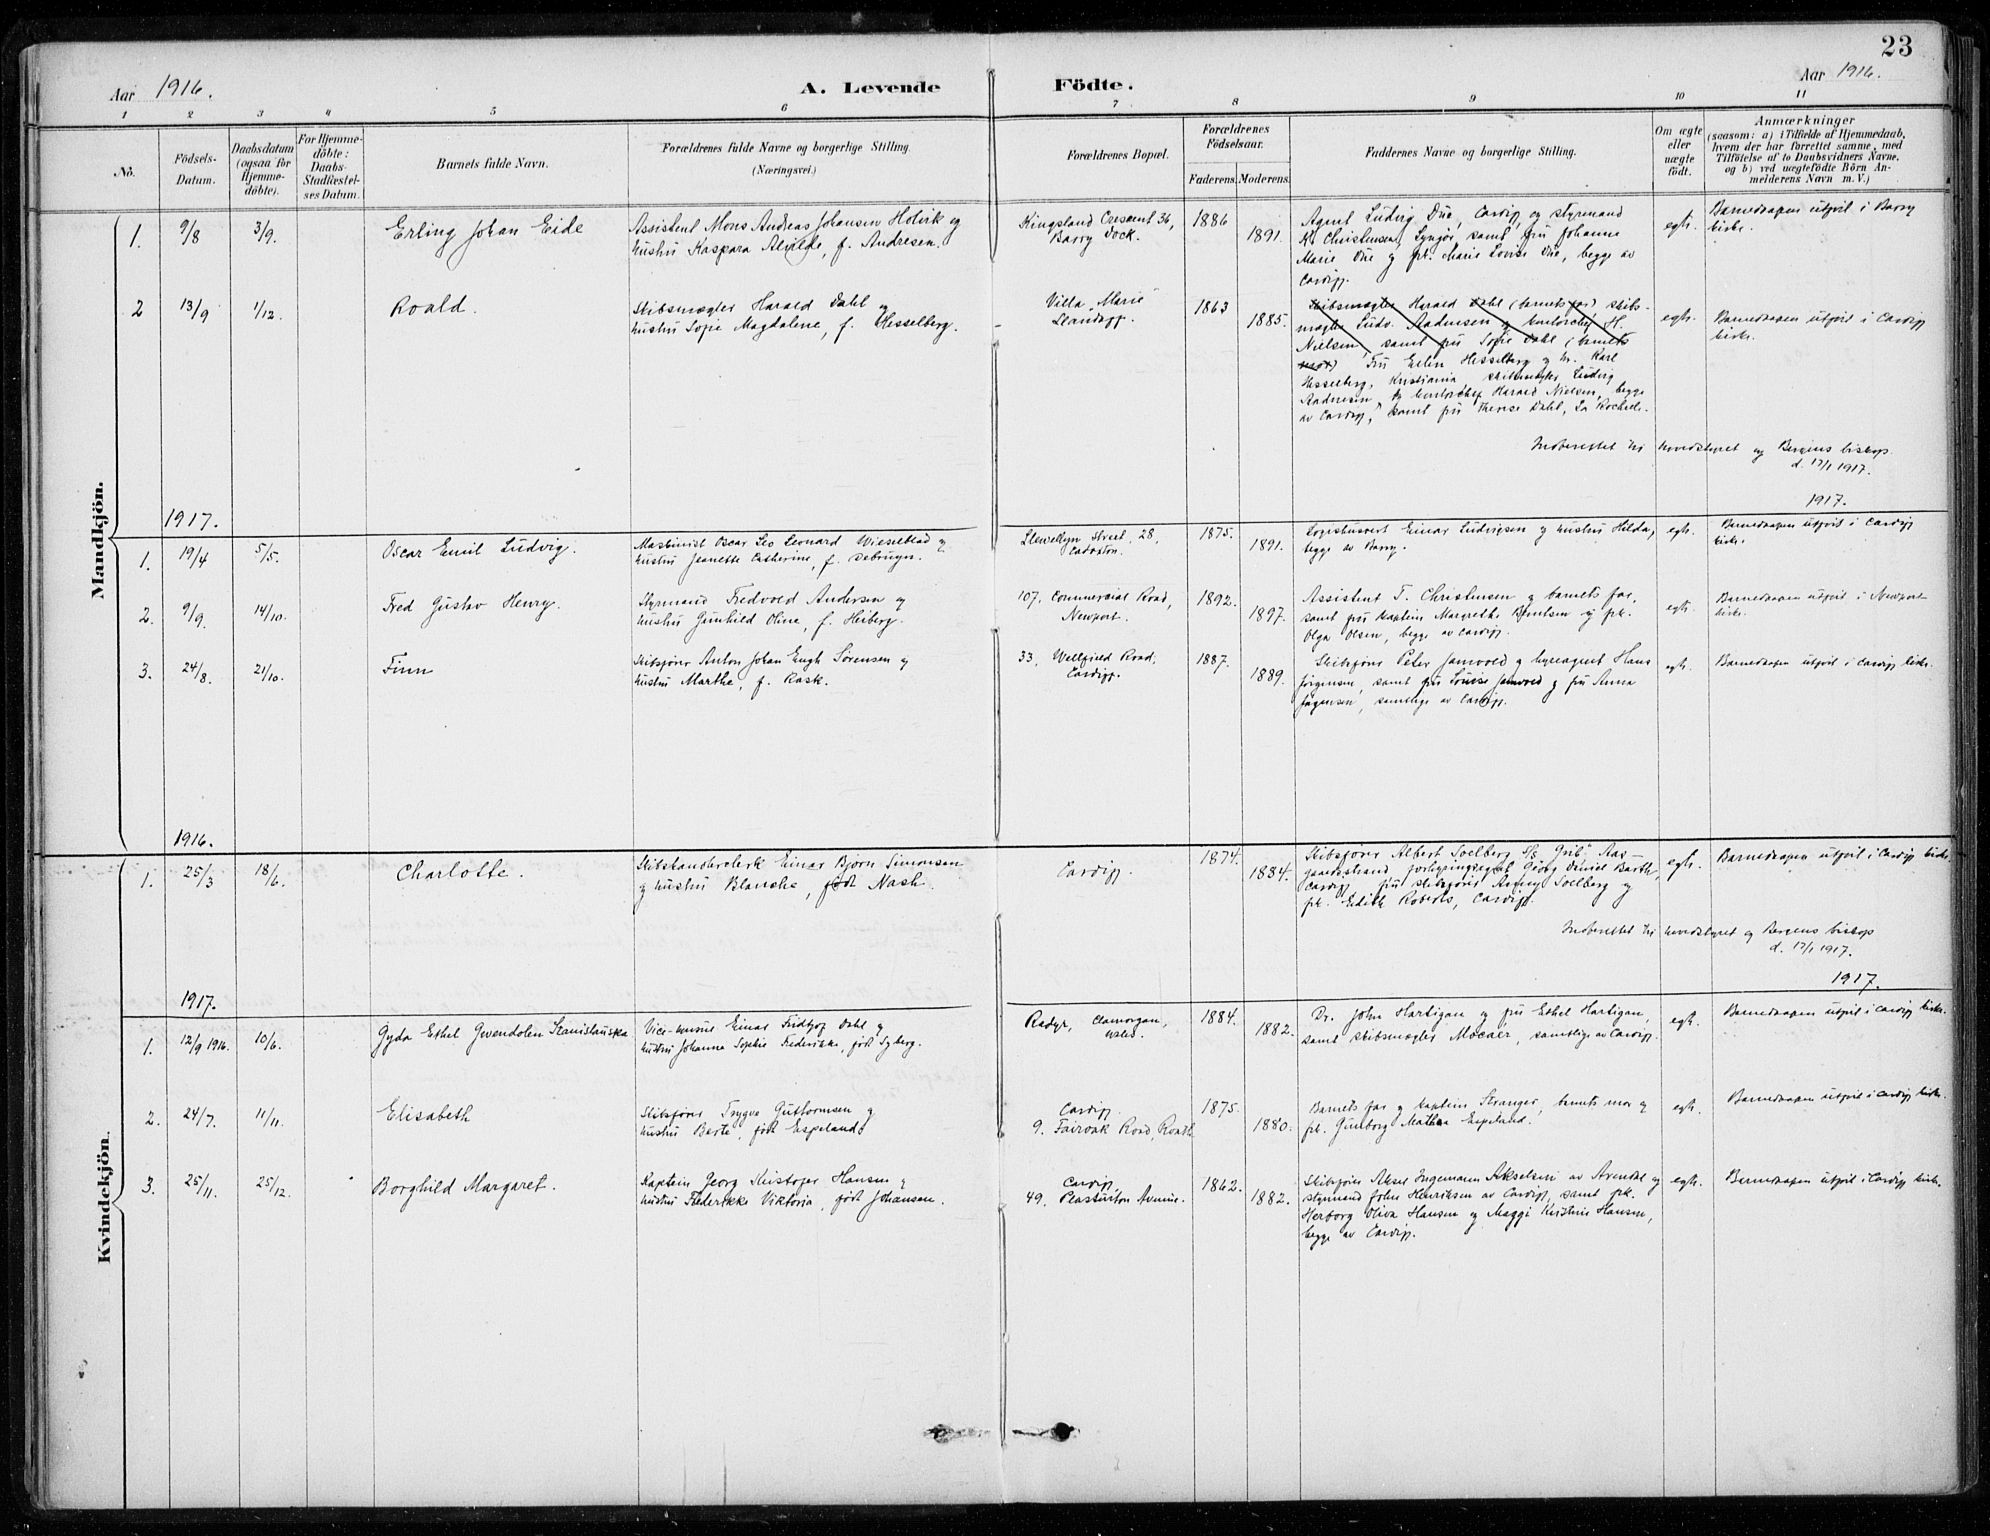 23
Aar 1916.
A. Levende
Födte.
Aar 1916.
1 2 3 4 5 6 7 8 9 10 11
No.
Födsels-
Datum.
Daabsdatum
(ogsaa for
Hjemme-
döbte).
For Hjemme-
döbte:
Daabs-
Stadfæstel-
ses Datum.
Barnets fulde Navn.
Forældrenes fulde Navne og borgerlige Stilling.
(Næringsvei.)
Forældrenes Bopæl.
Forældrenes
Födselsaar.
Faderens. Moderens.
Faddernes Navne og borgerlige Stilling.
Om ægte
eller
uægte
födt.
Anmærkninger
(saasom: a) i Tilfælde af Hjemmedaab,
hvem der har forrettet samme, med
Tilföielse af to Daabsvidners Navne,
og b) ved uægtefödte Börn An-
melderens Navn m. V.)
Mandkjön.
1.
9/8
3/9.
Erling Johan Eide
Assistent Mons Andreas Johansen Holvik og
hustru Kaspara Alvilde, f. Andresen.
Kingsland Crescent 36,
Barry Dock.
1886
1891.
Agent Ludvig Due, Cardiff, og styrmand
K. Christensen, Lyngör, samt fru Johanne
Marie Due og frk. Marie Lovise Due, begge av
Cardiff.
egte.
Barnedaapen utført i Barry
kirke.
2
13/9
1/12.
Roald.
Skibsmægler Harald Dahl og
hustru Sofie Magdalene, f. Hesselberg.
Villa Marie
Llandaff.
1863
1885.
Skibsmægler Harald Dahl (barnets far) skibs-
mægler Ludv. Aadnesen og kontorchef H.
Nielsen samt fru Sofie Dahl (barnets
mor) Fru Ellen Hesselberg og hr. Karl
Hesselberg, Kristiania, skibsmægler Ludvig
Aadnesen, og kontorchef Harald Nielsen, begge
av Cardiff, samt fru Therese Dahl, La Rochelle.
egte.
Barnedaapen utført i Cardiff
kirke.
Indberettet til hovedstyret og Bergens biskop
d. 17/1 1917.
1917.
1917.
1.
19/4
5/5.
Oscar Emil Ludvig.
Maskinist Oscar Leo Leonard Wieselblad og
hustru Jeanette Catherine, f. Debruyn.
Llewellyn Street, 28,
Cadoxton.
1875.
1891.
Logihusvert Einar Ludvigsen og hustru Hilda,
begge av Barry.
egte.
Barnedaapen utført i Cardiff
kirke.
2.
9/9.
14/10.
Fred Gustav Henry.
Styrmand Fredvold Andersen og
hustru Gunhild Oline, f. Heiberg.
107, Commercial Road,
Newport.
1892.
1897.
Assistent T. Christensen og barnets far,
samt fru kaptein Margrethe Berntsen og frk.
Olga Olsen, begge av Cardiff.
egte.
Barnedaapen utført i Newport
kirke.
3.
24/8.
21/10.
Finn
Skibsfører Anton Johan Engh Sørensen og
hustru Marthe, f. Rask.
33, Wellfield Road,
Cardiff.
1887.
1889.
Skibsfører Peter Jamvold og hyreagent Hans
Jørgensen, samt fru Louise Jamvold og fru Anna
Jørgensen, samtlige av Cardiff.
egte.
Barnedaapen utført i Cardiff kirke.
Kvindekjön.
1916.
1.
25/3
18/6.
Charlotte.
Skibshandlerclerk Einar Bjørn Simonsen
og hustru Blanche, født Nash.
Cardiff.
1874.
1884.
Skibsfører Albert Soelberg S/S "Grib" Aas-
gaardsstrand, forhyringsagent Georg Daniel Barth,
Cardiff, fru skibsfører Agny Soelberg og
frk. Edith Roberts, Cardiff.
egte.
Barnedaapen utført i Cardiff kirke.
Indberettet til hovedstyret og Bergens biskop
d. 17/1 1917.
1917.
1917.
1.
12/9 1916.
10/6.
Gyda Ethel Gwendolen Stanislauska
Vice-konsul Einar Fridtjof Dahl og
hustru Johanne Sophie Frederikke, født Syberg.
Radyr, Glamorgan,
Wales.
1884.
1882.
Dr. John Hartigan og fru Ethel Hartigan,
samt skibsmægler Mocaer, samtlige av Cardiff.
egte.
Barnedaapen utført i Cardiff kirke.
2.
24/7.
11/11.
Elisabeth
Skibsfører Trygve Guttormsen og
hustru Berte, født Espeland.
Cardiff.
9. Fairoak Road, Roath
1875.
1880.
Barnets far og kaptein Stranger, barnets mor og
frk. Gunborg Mathea Espeland.
egte.
Barnedaapen utført i Cardiff kirke.
3.
25/11.
25/12.
Borghild Margaret.
Kaptein Georg Kristofer Hansen og
hustru Frederikke Viktoria, født Johansen.
Cardiff,
49. Plasturton Avenue.
1862.
1882.
Skibsfører Aksel Ingemann Akselsen av Arendal og
styrmand John Henriksen av Cardiff, samt frk.
Herborg Oliva Hansen og Maggi Kristine Hansen,
begge av Cardiff.
egte.
Barnedaapen utført i Cardiff kirke.